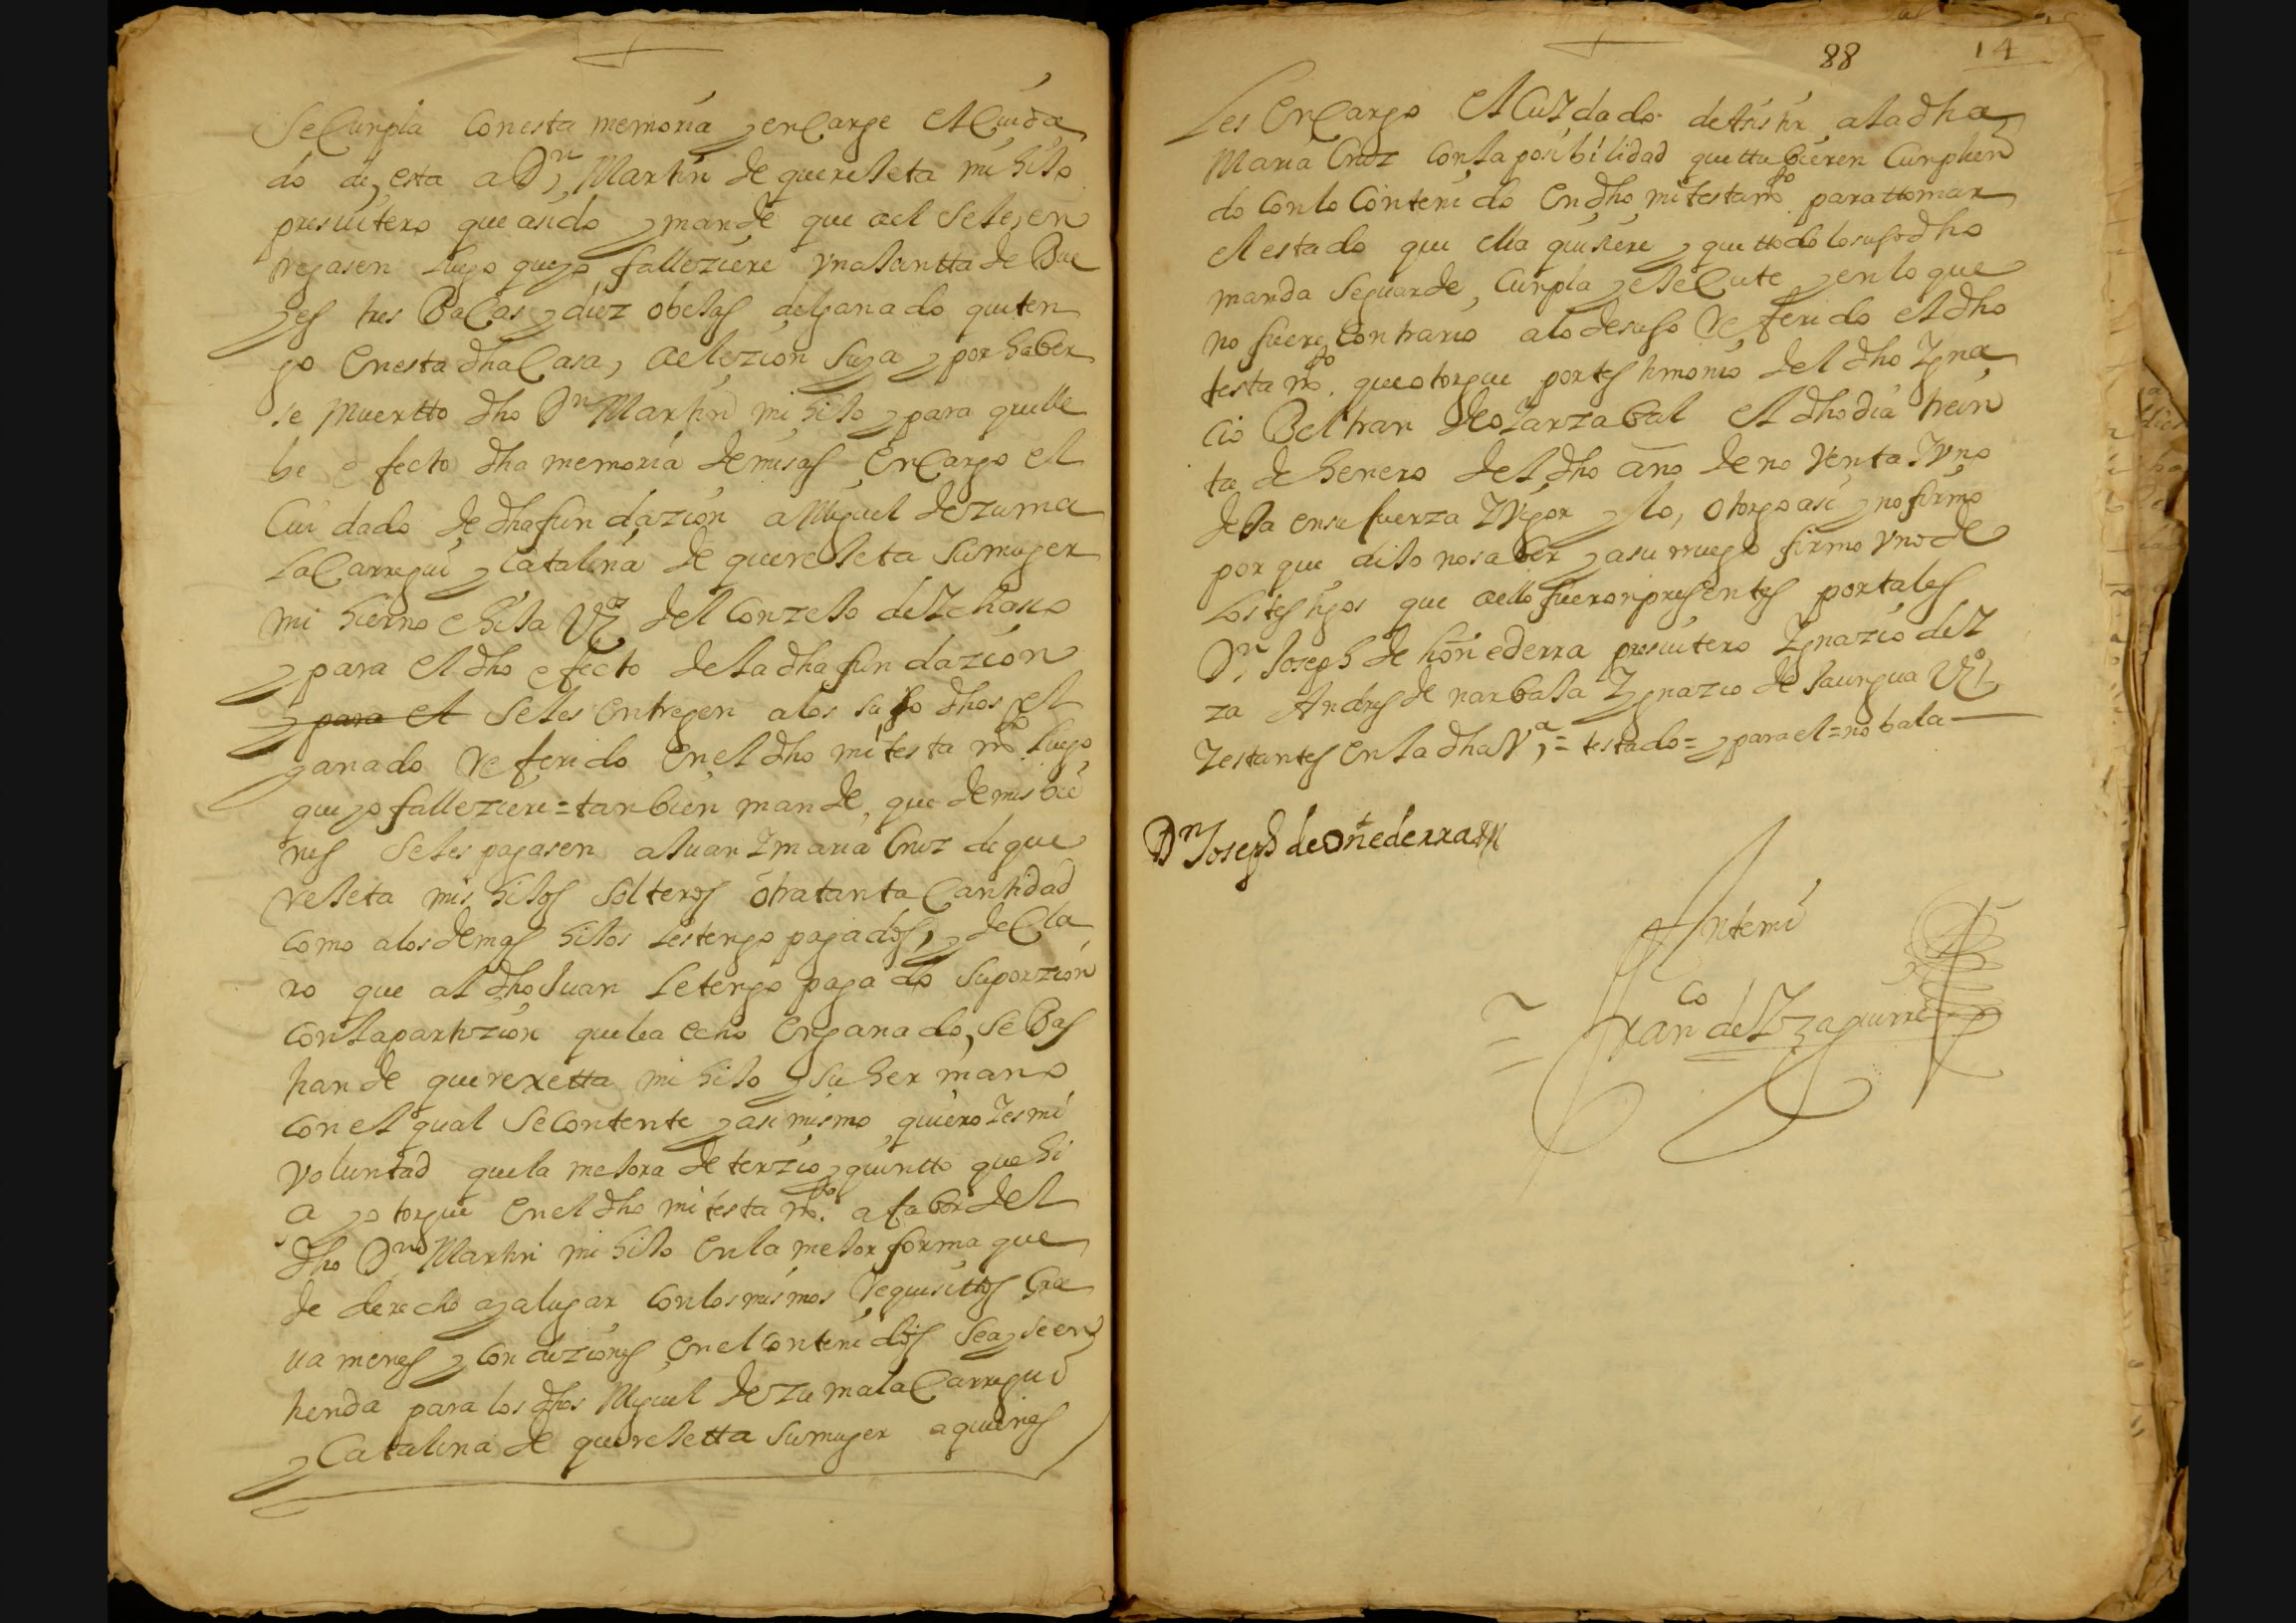 Se Cunpla Con esta memoria y encarge el Cuida
do de esta a Dn. Martin de quereJeta mi hiJo
presuitero que a sido y mande que a el se le en
tregasen luego que yo falleziere Vna Juntta de Bue
yes tres Bacas y diez obeJas del ganado que ten
go en esta dha Casa, a elezion Suya y por haber
se muertto dho Dn Martin mi hiJo y para que lle
be efecto dha memoria de misas encargo el
Cuidado de dha fundazion a Miguel de Zuma
laCarregui y Catalina de quereJeta Su muger
mi hierno e hiJa Vos del ConzeJo de
y para el dho efecto de la dha fundazion
y para el Se les entregen a los suso dhos el
ganado Referido en el dho mi testamto. luego
que yo falleziere = tanbien mande, que de mis bie
nes Se les pagasen a Juan Y maria Cruz de que
reJeta mis hiJos Solteros otra tanta Cantidad
Como a los demas hiJos les tengo pagados, y decla
ro que al dho Juan le tengo pagado Su porzion
Con la partizion que le a echo en ganado, Sebas
tian de querexetta mi hiJo y Su hermano
Con el qual Se Contente y asi mismo quiero Y es mi
Voluntad que la meJora de terzio y quintto que hi
a y otorgue en el dho mi testamto. a fabor del
dho Dn Martin mi hiJo en la meJor forma que
de derecho aya lugar Con los mismos Requisittos Gra
uamenes y Condiziones en el Contenidos Sea y se en
tienda para los dhos Miguel de ZumalaCarregui
y Catalina de quereJetta Su muger a quienes
88 14
Les encargo el Cuydado de Asistir a la dha
Maria Cruz Con la posibilidad que ttubieren Cunplien
do Con lo Contenido en dho mi testamto. para ttomar
el estado que ella quisiere y que ttodo lo suso dho
manda Se guarde, Cunpla y eJeCute y en lo que
no fuere Contrario a lo de suso Referido el dho
testamto. que otorgue por testimonio del dho Ygna
cio Beltran de olarzabal el dho dia trein
ta de henero del dho año de nobenta Y Vno
deJa en su fuerza Y Vigor y lo, otorgo asi y no firmo
por que diJo no saber y a su rruego firmo Vno de
los testigos que a ello fueron presentes por tales
Dn. Joseph de hoñederra presuitero Ygnazio de Y
za Andres de narbaJa Ygnazio de Vos
Y estantes en la dha Va, = testado = y para el = no bala
Dn Joseph de Oñederra
Antemi
Franco de Yzaguirre